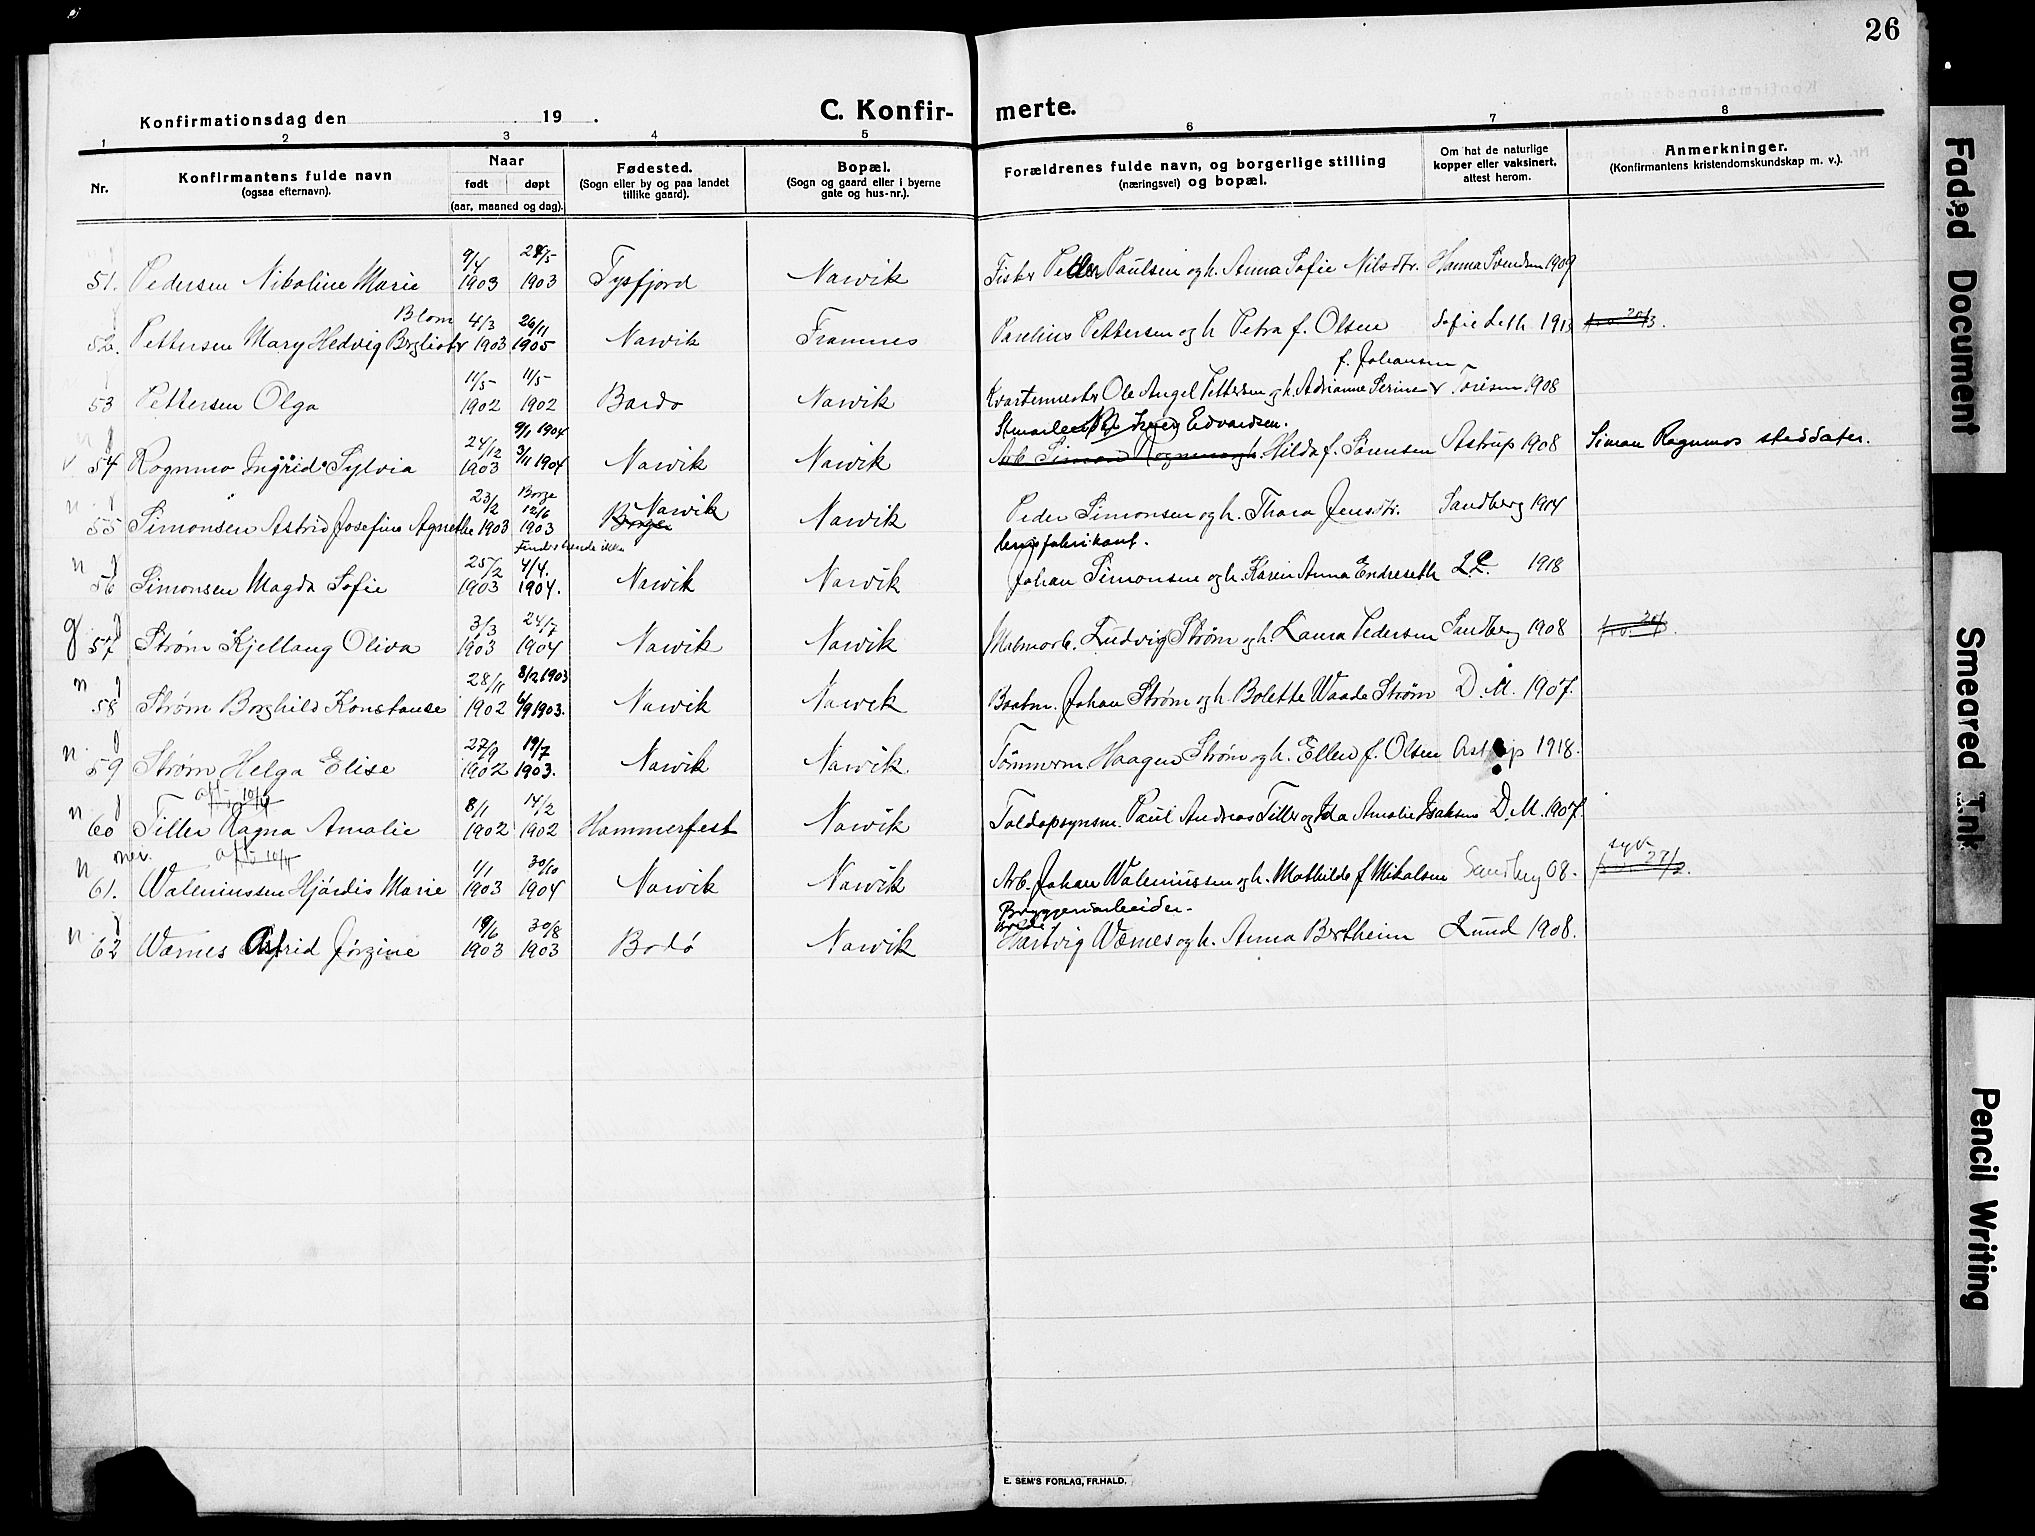 26
Konfirmationsdag den 19 .
C. Konfirmerte.
1 2 3 4 5 6 7 8
Nr.
Konfirmantens fulde navn
(ogsaa efternavn).
Naar
født døpt
(aar, maaned og dag).
Fødested.
(Sogn eller by og paa landet
tillike gaard).
Bopæl.
(Sogn og gaard eller i byerne
gate og hus-nr.).
Forældrenes fulde navn, og borgerlige stilling
(næringsvei) og bopæl.
Om hat de naturlige
kopper eller vaksinert,
attest herom.
Anmerkninger.
(Konfirmantens kristendomskundskap m. v.).
9/4
51. Pedersen Nikoline Marie 1903 1903 Tysfjord Narvik Fisker Peder Paulsen og h. Anna Sofie Nilsdtr. Hanna Svendsen 1909
Blom 4/3 26/11
52. Pettersen Mary Hedvig 1903 1905 Narvik Framnes Paulius Pettersen og h Petra f. Olsen Sofie Leth 1913
f. Johansen
11/5 11/5
53 Pettersen Olga 1902 1902 Bardo Narvik Kvartermester Ole Angel Pettersen og h. Adrianne Serine 1908
Edvardsen.
24/12 9/1 1904
54 Rognmo Ingrid Sylvia 1903 1904 Narvik Narvik Arb. Simon Rognmo og h. Hilda f. Sørensen Astrup 1908 Simon Rognmos steddater.
23/2 Borge 12/6
55 Simonsen Astrid Josefine Agnethe 1903 1903 Borge Narvik Narvik Peder Simonsen og h. Thora Jensdtr. Sandberg 1904
25/2 4/4.
56 Simonsen Magda Sofie 1903 1904. Narvik Narvik Johan Simonsen og h. Karen Anna Endreseth L.L. 1918
3/3 24/7
57 Strøm Kjellaug Oliva 1903 1904 Narvik Narvik Malmarb. Ludvig Strøm og h. Laura Pedersen Sandberg 1908
28/11 8/2 1903
58 Strøm Borghild Konstanse 1902 6/9 1903. Narvik Narvik Baatsm. Johan Strøm og h. Bolette Waade Strøm D. M. 1907.
27/9 19/7
59 Strøm Helga Elise 1902 1903. Narvik Narvik Tömmerm Haagen Strøm og h. Ellen f. Olsen Astrup 1918.
8/1 14/2
60 Tiller Ragna Amalie 1902 1902 Hammerfest Narvik Toldopsynsm. Paul Andreas Tiller og Ida Amalie Isaksen D. M. 1907.
1/1 30/10
61. Waleniussen Hjördis Marie 1903 1904 Narvik Narvik Arb. Johan Waleniussen og h. Mathilde f Mikalsen Sandberg 08. syk
Bryggeriarbeider.
19/6 30/8
62 Wærnes Astrid Jörgine 1903 1903 Bodö Narvik Hartvig Wærnes og h. Anna Bertheim Lund 1908.
E. SEM'S FORLAG, FR.HALD.
Faded Document
Smeared Ink
Pencil Writing